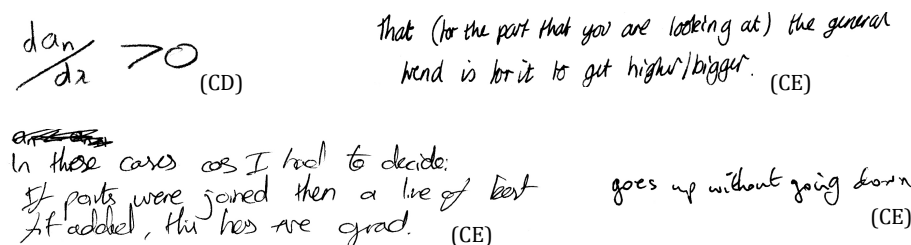 dan/dx >0
(CD)
That (for the part that you are looking at) the general
trend is for it to get higher/bigger.
(CE)
In these cases cos I had to decide:
If points were joined then a line of best
fit added, this has +ve grad.
(CE)
goes up without going down
(CE)